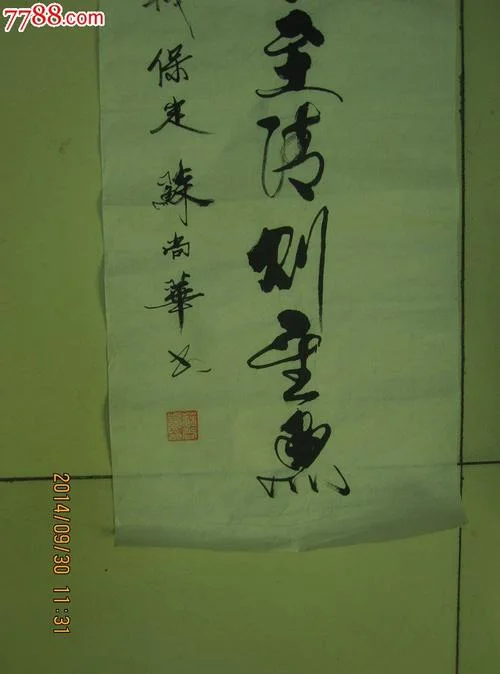 7788.com
至清则无魚
保定 蘇尚華 书
2014/09/30 11:31